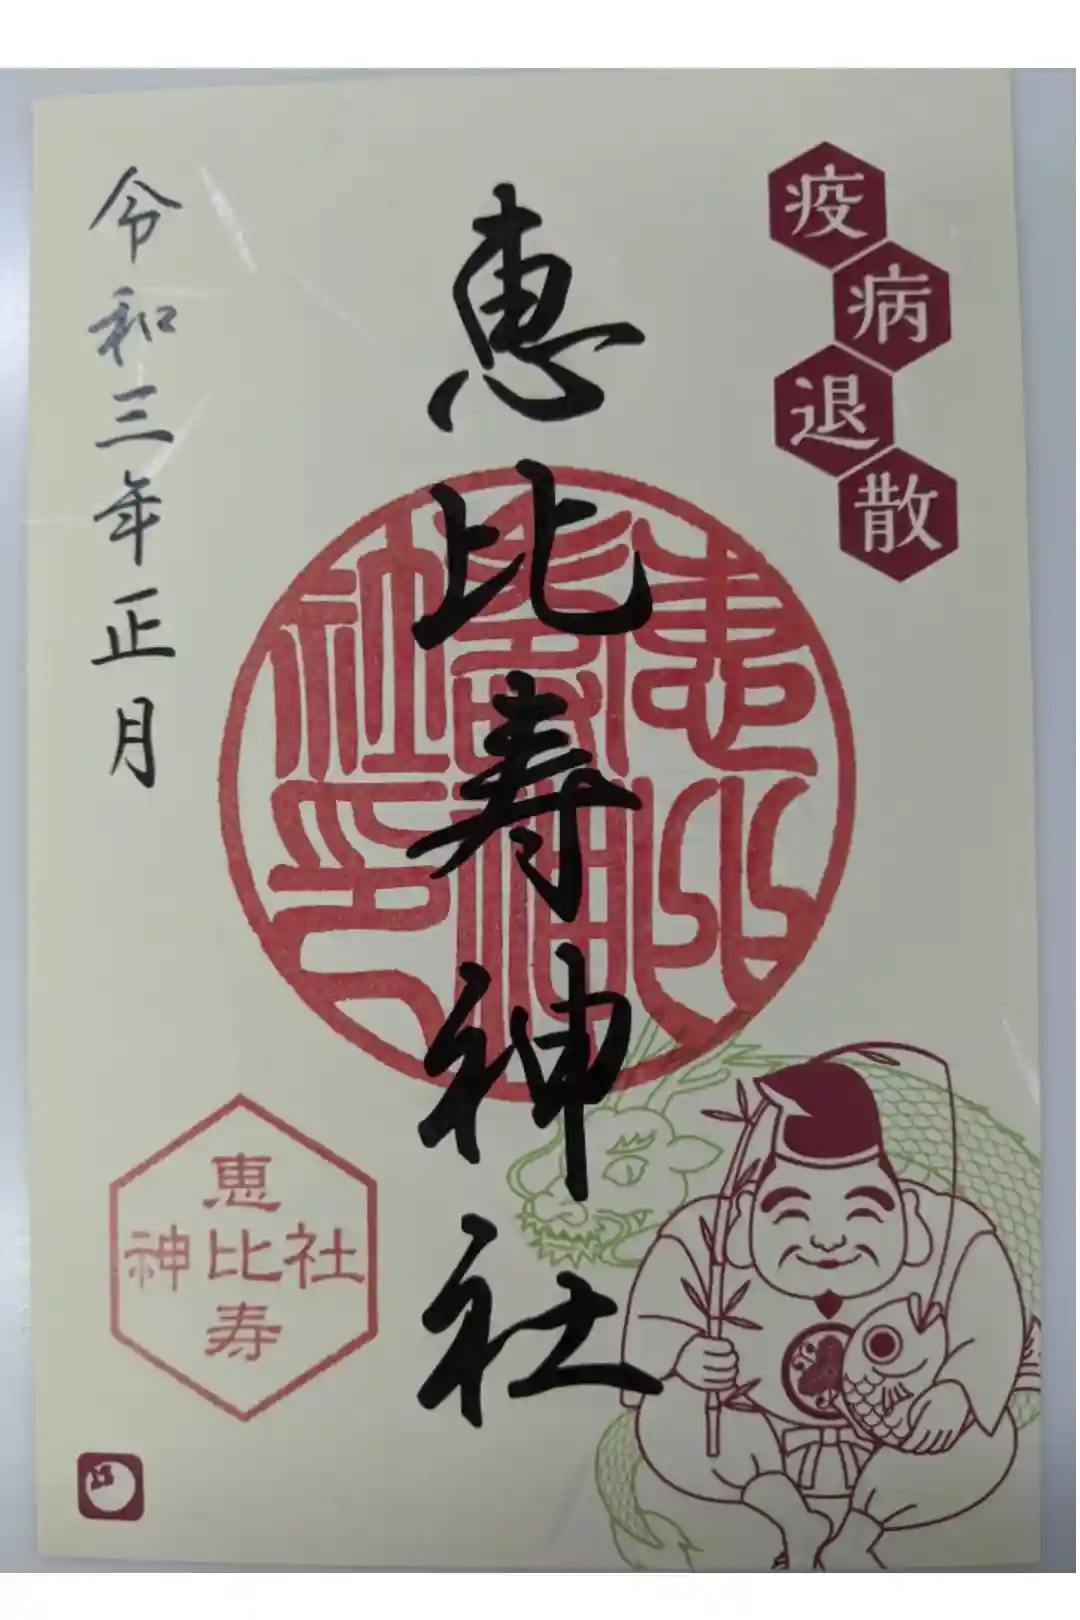 疫病退散
恵比寿神社
恵比寿神社印
令和三年正月
恵
神比社
寿